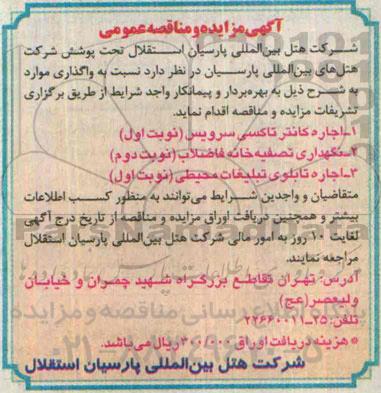 آگهی مزایده و مناقصه عمومی
شرکت هتل بین‌المللی پارسیان استقلال تحت پوشش شرکت
هتل‌های بین‌المللی پارسیان در نظر دارد نسبت به واگذاری موارد
به شرح ذیل به بهره‌بردار و پیمانکار واجد شرایط از طریق برگزاری
تشریفات مزایده و مناقصه اقدام نماید.
۱-اجاره کانتر تاکسی سرویس (نوبت اول)
۲-نگهداری تصفیه خانه فاضلاب (نوبت دوم)
۳-اجاره تابلوی تبلیغات محیطی (نوبت اول)
متقاضیان و واجدین شرایط می‌توانند به منظور کسب اطلاعات
بیشتر و همچنین دریافت اوراق مزایده و مناقصه از تاریخ درج آگهی
لغایت ۱۰ روز به امور مالی شرکت هتل بین‌المللی پارسیان استقلال
مراجعه نمایند.
آدرس: تهران تقاطع بزرگراه شهید چمران و خیابان
ولیعصر(عج)
تلفن: ۲۵-۲۲۶۶۰۰۱۱
* هزینه دریافت اوراق ۳۰۰/۰۰۰ ریال می‌باشد.
شرکت هتل بین‌المللی پارسیان استقلال